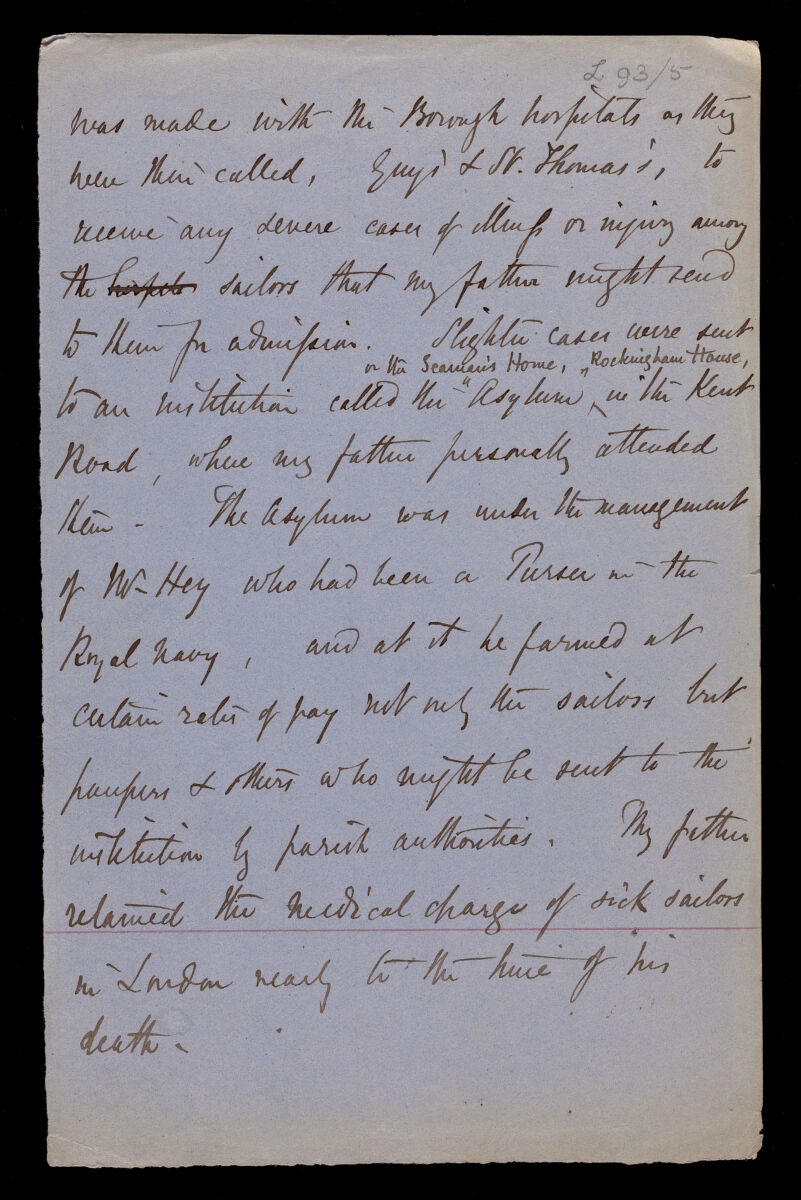 L 93/5
was made with the Borough hospitals as they
were then called, Guy's & St. Thomas's, to
receive any severe cases of illness or injury among
the hospitals sailors that my father might send
to them for admission. Slighter cases were sent
or the Seaman's Home, "Rockingham House,
to an institution called the "Asylum, in the Kent
Road, where my father personally attended
them - The Asylum was under the management
of Mr Hey who had been a Purser in the
Royal Navy, and at it he farmed at
certain rates of pay not only the sailors but
paupers & others who might be sent to the
institution by parish authorities. My father
retained the medical charge of sick sailors
in London nearly to the time of his
death -